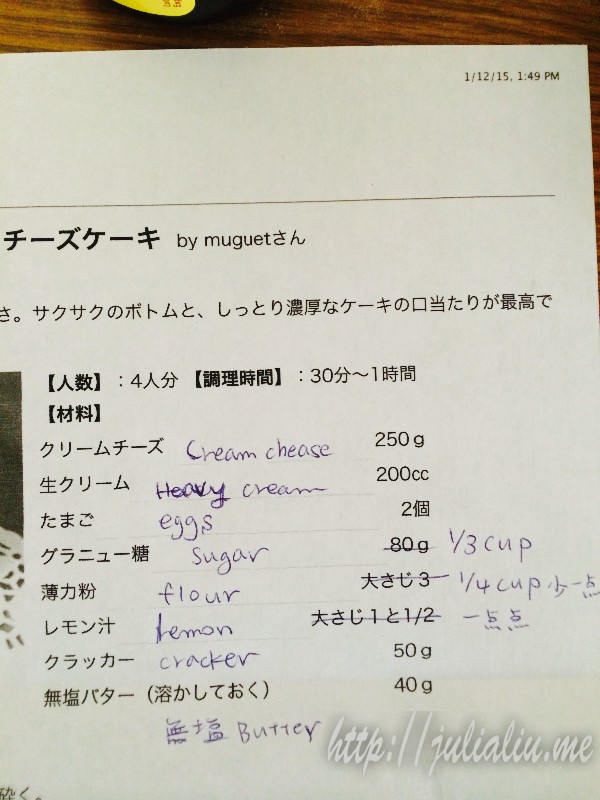 1/12/15, 1:49 PM
チーズケーキ by muguetさん
さ。サクサクのボトムと、しっとり濃厚なケーキの口当たりが最高で
【人数】：4人分 【調理時間】：30分〜1時間
【材料】
クリームチーズ Cream chease 250g
生クリーム Heavy cream 200cc
たまご eggs 2個
グラニュー糖 sugar 80g 1/3 cup
薄力粉 flour 大さじ3 1/4 cup 少一点
レモン汁 lemon 大さじ1と1/2 一点点
クラッカー cracker 50g
無塩バター（溶かしておく） 40g
無塩 Butter
http://julialiu.me
砕く。